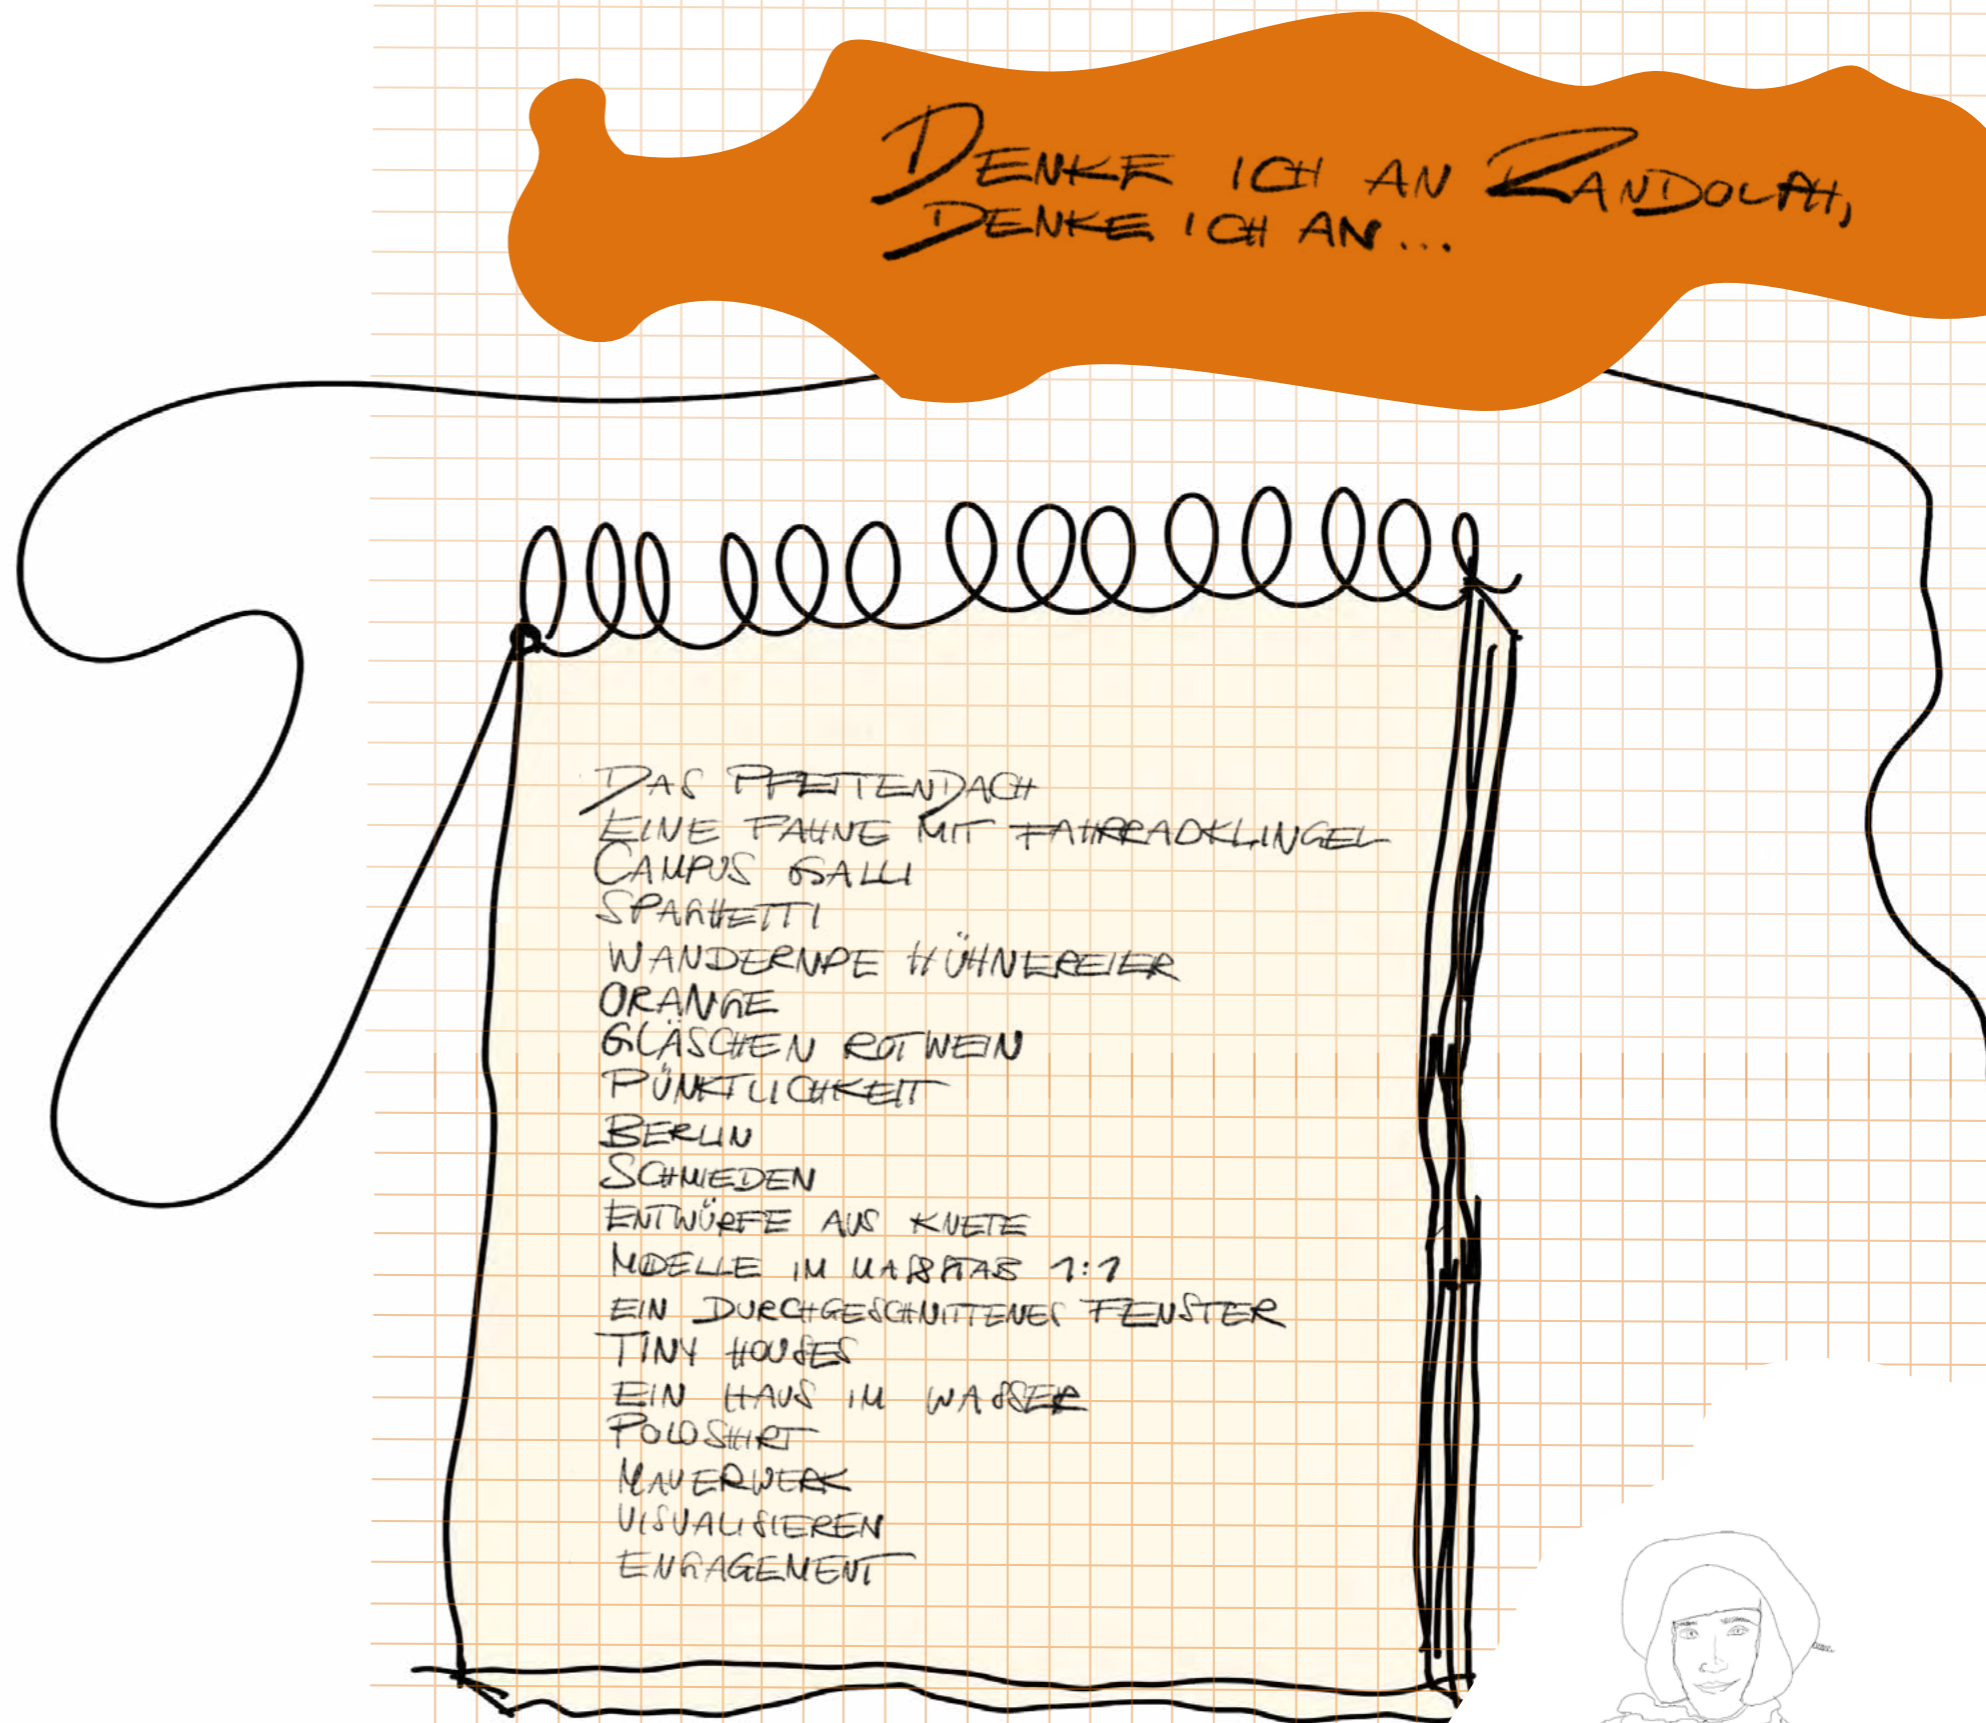 DENKE ICH AN RANDOLPH,
DENKE ICH AN...
DAS PFETTENDACH
EINE FAHNE MIT FAHRRADKLINGEL
CAMPUS GALLI
SPAGHETTI
WANDERNDE HÜHNEREIER
ORANGE
GLÄSCHEN ROTWEIN
PÜNKTLICHKEIT
BERLIN
SCHMIEDEN
ENTWÜRFE AUS KNETE
MODELLE IM MAßSTAB 1:1
EIN DURCHGESCHNITTENES FENSTER
TINY HOUSES
EIN HAUS IM WASSER
POLOSHIRT
MAUERWERK
VISUALISIEREN
ENGAGEMENT